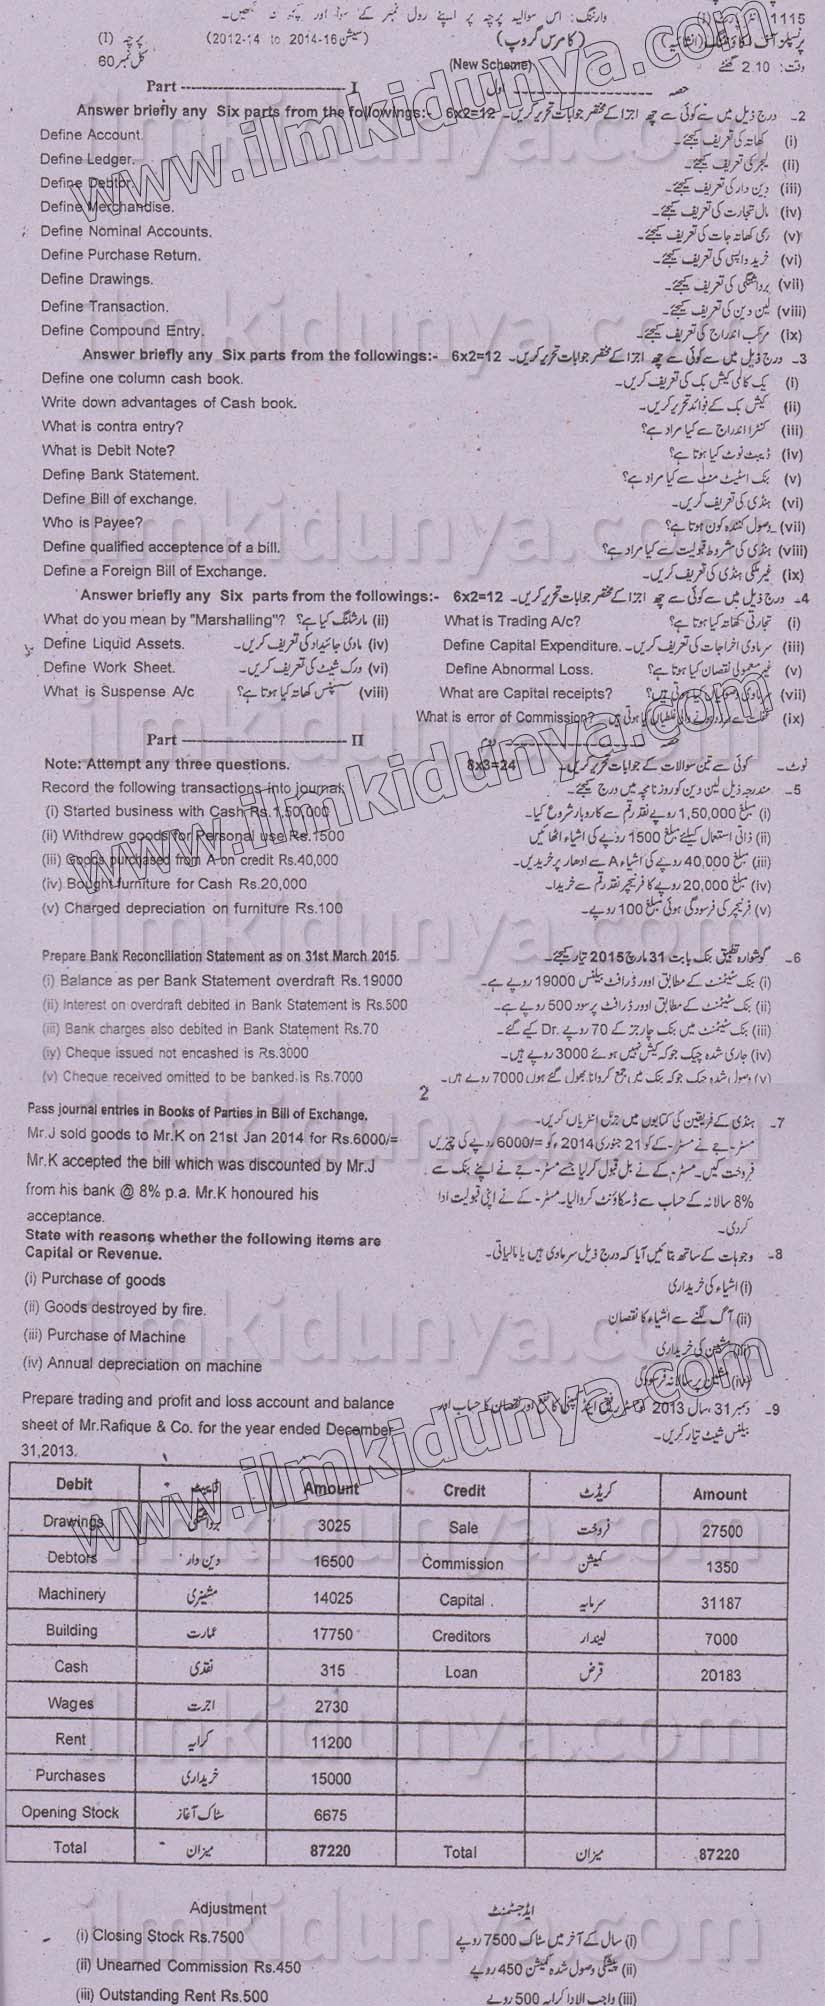 1115
وارننگ: اس سوالیہ پرچہ پر اپنے رول نمبر کے سوا اور کچھ نہ لکھیں۔
پرنسپلز آف اکاؤنٹنگ (انشائیہ) (کامرس گروپ) (سیشن 2012-14 to 2014-16) پرچہ (I)
وقت: 2.10 گھنٹے (New Scheme) کل نمبر 60
Part ---------------------- I حصہ ---------------------- اول
Answer briefly any Six parts from the followings:- 6x2=12 2۔ درج ذیل میں سے کوئی سے چھ اجزا کے مختصر جوابات تحریر کریں۔
Define Account. (i) کھاتہ کی تعریف کیجئے۔
Define Ledger. (ii) لیجر کی تعریف کیجئے۔
Define Debtor. (iii) دین دار کی تعریف کیجئے۔
Define Merchandise. (iv) مال تجارت کی تعریف کیجئے۔
Define Nominal Accounts. (v) رسمی کھاتہ جات کی تعریف کیجئے۔
Define Purchase Return. (vi) خرید واپسی کی تعریف کیجئے۔
Define Drawings. (vii) برداشتگی کی تعریف کیجئے۔
Define Transaction. (viii) لین دین کی تعریف کیجئے۔
Define Compound Entry. (ix) مرکب اندراج کی تعریف کیجئے۔
Answer briefly any Six parts from the followings:- 6x2=12 3۔ درج ذیل میں سے کوئی سے چھ اجزا کے مختصر جوابات تحریر کریں۔
Define one column cash book. (i) یک کالمی کیش بک کی تعریف کریں۔
Write down advantages of Cash book. (ii) کیش بک کے فوائد تحریر کریں۔
What is contra entry? (iii) کنٹرا اندراج سے کیا مراد ہے؟
What is Debit Note? (iv) ڈیبٹ نوٹ کیا ہوتا ہے؟
Define Bank Statement. (v) بنک اسٹیٹ منٹ سے کیا مراد ہے؟
Define Bill of exchange. (vi) ہنڈی کی تعریف کریں۔
Who is Payee? (vii) وصول کنندہ کون ہوتا ہے؟
Define qualified acceptence of a bill. (viii) ہنڈی کی مشروط قبولیت سے کیا مراد ہے؟
Define a Foreign Bill of Exchange. (ix) غیر ملکی ہنڈی کی تعریف کریں۔
Answer briefly any Six parts from the followings:- 6x2=12 4۔ درج ذیل میں سے کوئی سے چھ اجزا کے مختصر جوابات تحریر کریں۔
What do you mean by "Marshalling"? (ii) مارشلنگ کیا ہے؟ What is Trading A/c? (i) تجارتی کھاتہ کیا ہوتا ہے؟
Define Liquid Assets. (iv) مادی جائیداد کی تعریف کریں۔ Define Capital Expenditure. (iii) سرمادی اخراجات کی تعریف کریں۔
Define Work Sheet. (vi) ورک شیٹ کی تعریف کریں۔ Define Abnormal Loss. (v) غیر معمولی نقصان کیا ہوتا ہے؟
What is Suspense A/c (viii) سسپنس کھاتہ کیا ہوتا ہے؟ What are Capital receipts? (vii)
What is error of Commission? (ix)
Part ---------------------- II حصہ ---------------------- دوم
Note: Attempt any three questions. 8x3=24 نوٹ۔ کوئی سے تین سوالات کے جوابات تحریر کریں۔
Record the following transactions into journal: 5۔ مندرجہ ذیل لین دین کو روزنامچہ میں درج کیجئے۔
(i) Started business with Cash Rs.1,50,000 (i) مبلغ 1,50,000 روپے نقد رقم سے کاروبار شروع کیا۔
(ii) Withdrew goods for Personal use Rs.1500 (ii) ذاتی استعمال کیلئے مبلغ 1500 روپے کی اشیاء اٹھائیں
(iii) Goods purchased from A on credit Rs.40,000 (iii) مبلغ 40,000 روپے کی اشیاء A سے ادھار پر خریدیں۔
(iv) Bought furniture for Cash Rs.20,000 (iv) مبلغ 20,000 روپے کا فرنیچر نقد رقم سے خریدا۔
(v) Charged depreciation on furniture Rs.100 (v) فرنیچر کی فرسودگی ہوئی مبلغ 100 روپے۔
Prepare Bank Reconciliation Statement as on 31st March 2015. 6۔ گوشوارہ تطبیق بنک بابت 31 مارچ 2015 تیار کیجئے۔
(i) Balance as per Bank Statement overdraft Rs.19000 (i) بنک سٹیٹمنٹ کے مطابق اوور ڈرافٹ بیلنس 19000 روپے ہے۔
(ii) Interest on overdraft debited in Bank Statement is Rs.500 (ii) بنک سٹیٹمنٹ کے مطابق اوور ڈرافٹ پر سود 500 روپے ہے۔
(iii) Bank charges also debited in Bank Statement Rs.70 (iii) بنک سٹیٹمنٹ میں بنک چارجز کے 70 روپے Dr. کیے گئے۔
(iv) Cheque issued not encashed is Rs.3000 (iv) جاری شدہ چیک جو کہ کیش نہیں ہوئے 3000 روپے ہیں۔
(v) Cheque received omitted to be banked is Rs.7000 (v) وصول شدہ چیک جو کہ بنک میں جمع کروانا بھول گئے ہوں 7000 روپے ہیں۔
2
Pass journal entries in Books of Parties in Bill of Exchange. 7۔ ہنڈی کے فریقین کی کتابوں میں جرنل انٹریاں کریں۔
Mr.J sold goods to Mr.K on 21st Jan 2014 for Rs.6000/= مسٹر۔جے نے مسٹر۔کے کو 21 جنوری 2014ء کو =/6000 روپے کی چیزیں
Mr.K accepted the bill which was discounted by Mr.J فروخت کیں۔ مسٹر۔کے نے بل قبول کر لیا جسے مسٹر۔جے نے اپنے بنک سے
from his bank @ 8% p.a. Mr.K honoured his 8% سالانہ کے حساب سے ڈسکاؤنٹ کروا لیا۔ مسٹر۔کے نے اپنی قبولیت ادا
acceptance. کر دی۔
State with reasons whether the following items are 8۔ وجوہات کے ساتھ بتائیں آیا کہ درج ذیل سرمادی ہیں یا مالیاتی۔
Capital or Revenue.
(i) Purchase of goods (i) اشیاء کی خریداری
(ii) Goods destroyed by fire. (ii) آگ لگنے سے اشیاء کا نقصان
(iii) Purchase of Machine (iii) مشین کی خریداری
(iv) Annual depreciation on machine (iv) مشین پر سالانہ فرسودگی
Prepare trading and profit and loss account and balance 9۔ دسمبر 31، سال 2013 کو مسٹر رفیق اینڈ کمپنی کا نفع اور نقصان کا حساب اور
sheet of Mr.Rafique & Co. for the year ended December بیلنس شیٹ تیار کریں۔
31,2013.
Debit ڈیبٹ Amount Credit کریڈٹ Amount
Drawings برداشتگی 3025 Sale فروخت 27500
Debtors دین دار 16500 Commission کمیشن 1350
Machinery مشینری 14025 Capital سرمایہ 31187
Building عمارت 17750 Creditors لیندار 7000
Cash نقدی 315 Loan قرض 20183
Wages اجرت 2730
Rent کرایہ 11200
Purchases خریداری 15000
Opening Stock سٹاک آغاز 6675
Total میزان 87220 Total میزان 87220
Adjustment ایڈجسٹمنٹ
(i) Closing Stock Rs.7500 (i) سال کے آخر میں سٹاک 7500 روپے
(ii) Unearned Commission Rs.450 (ii) پیشگی وصول شدہ کمیشن 450 روپے
(iii) Outstanding Rent Rs.500 (iii) واجب الادا کرایہ 500 روپے
www.ilmkidunya.com